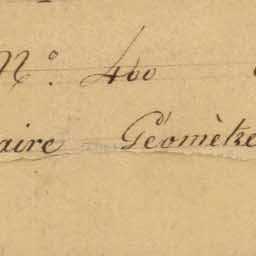 N.º 460
aire Géomètre